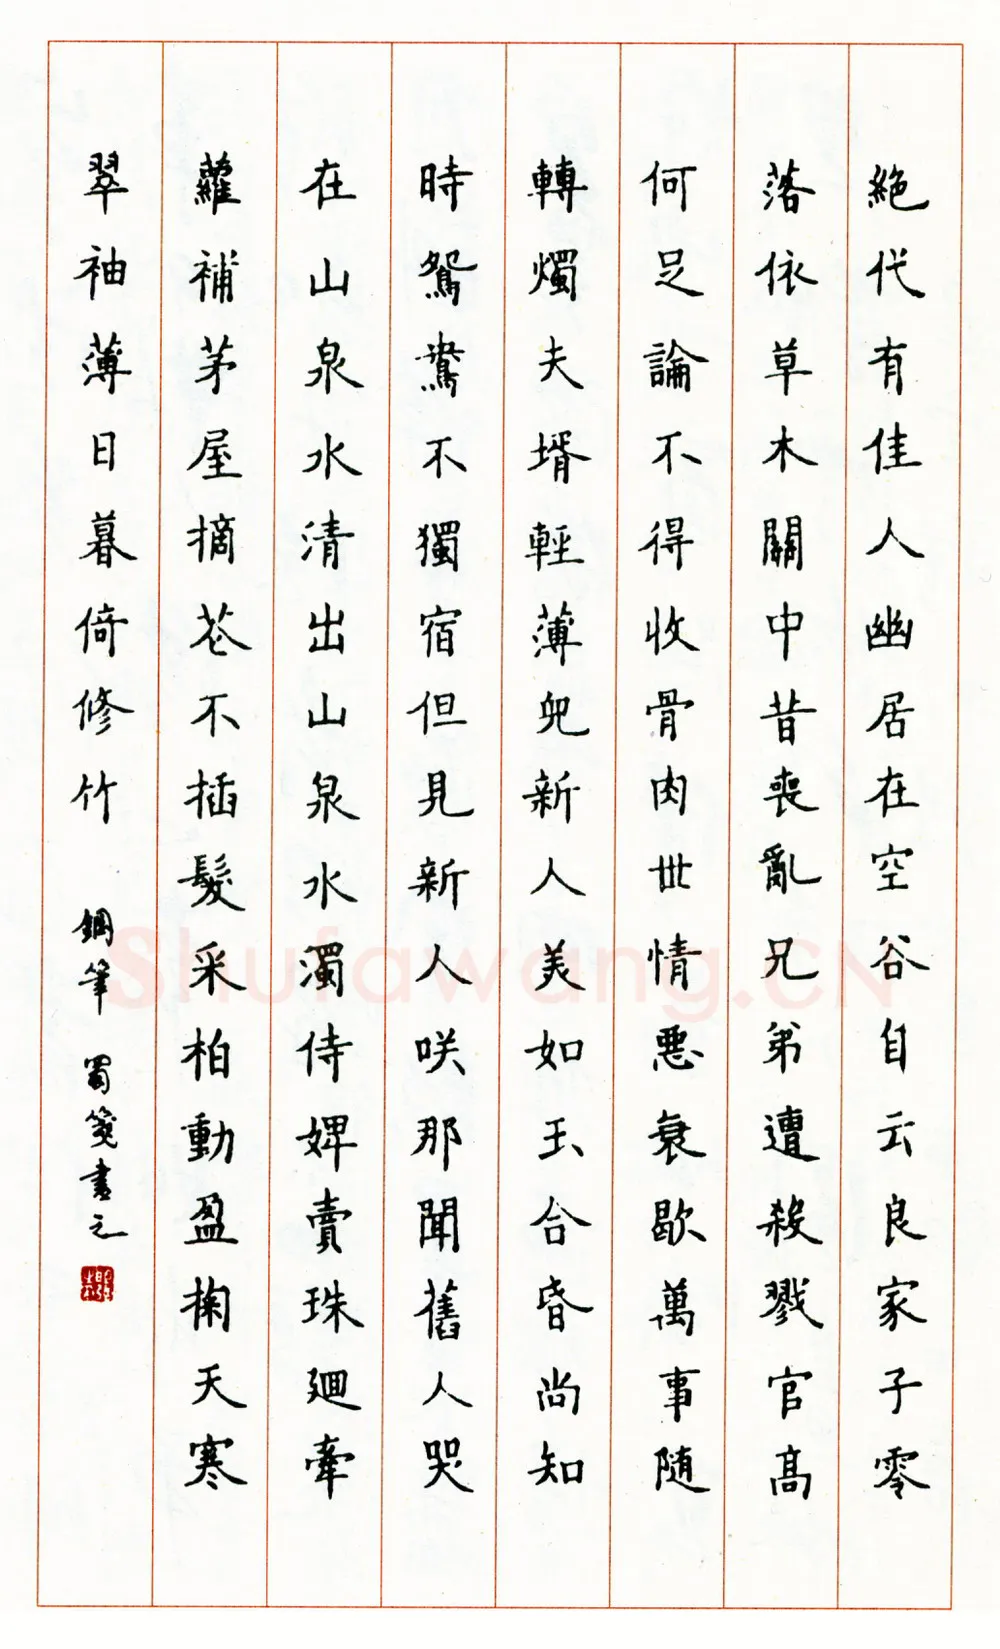 絶代有佳人幽居在空谷自云良家子零
落依草木關中昔喪亂兄弟遭殺戮官高
何足論不得收骨肉世情惡衰歇萬事随
轉燭夫壻輕薄兒新人美如玉合昏尚知
時鴛鴦不獨宿但見新人咲那聞舊人哭
在山泉水清出山泉水濁侍婢賣珠廻牽
蘿補茅屋摘花不插髮采柏動盈掬天寒
翠袖薄日暮倚修竹
鋼筆 蜀箋書之
Shufawang.CN